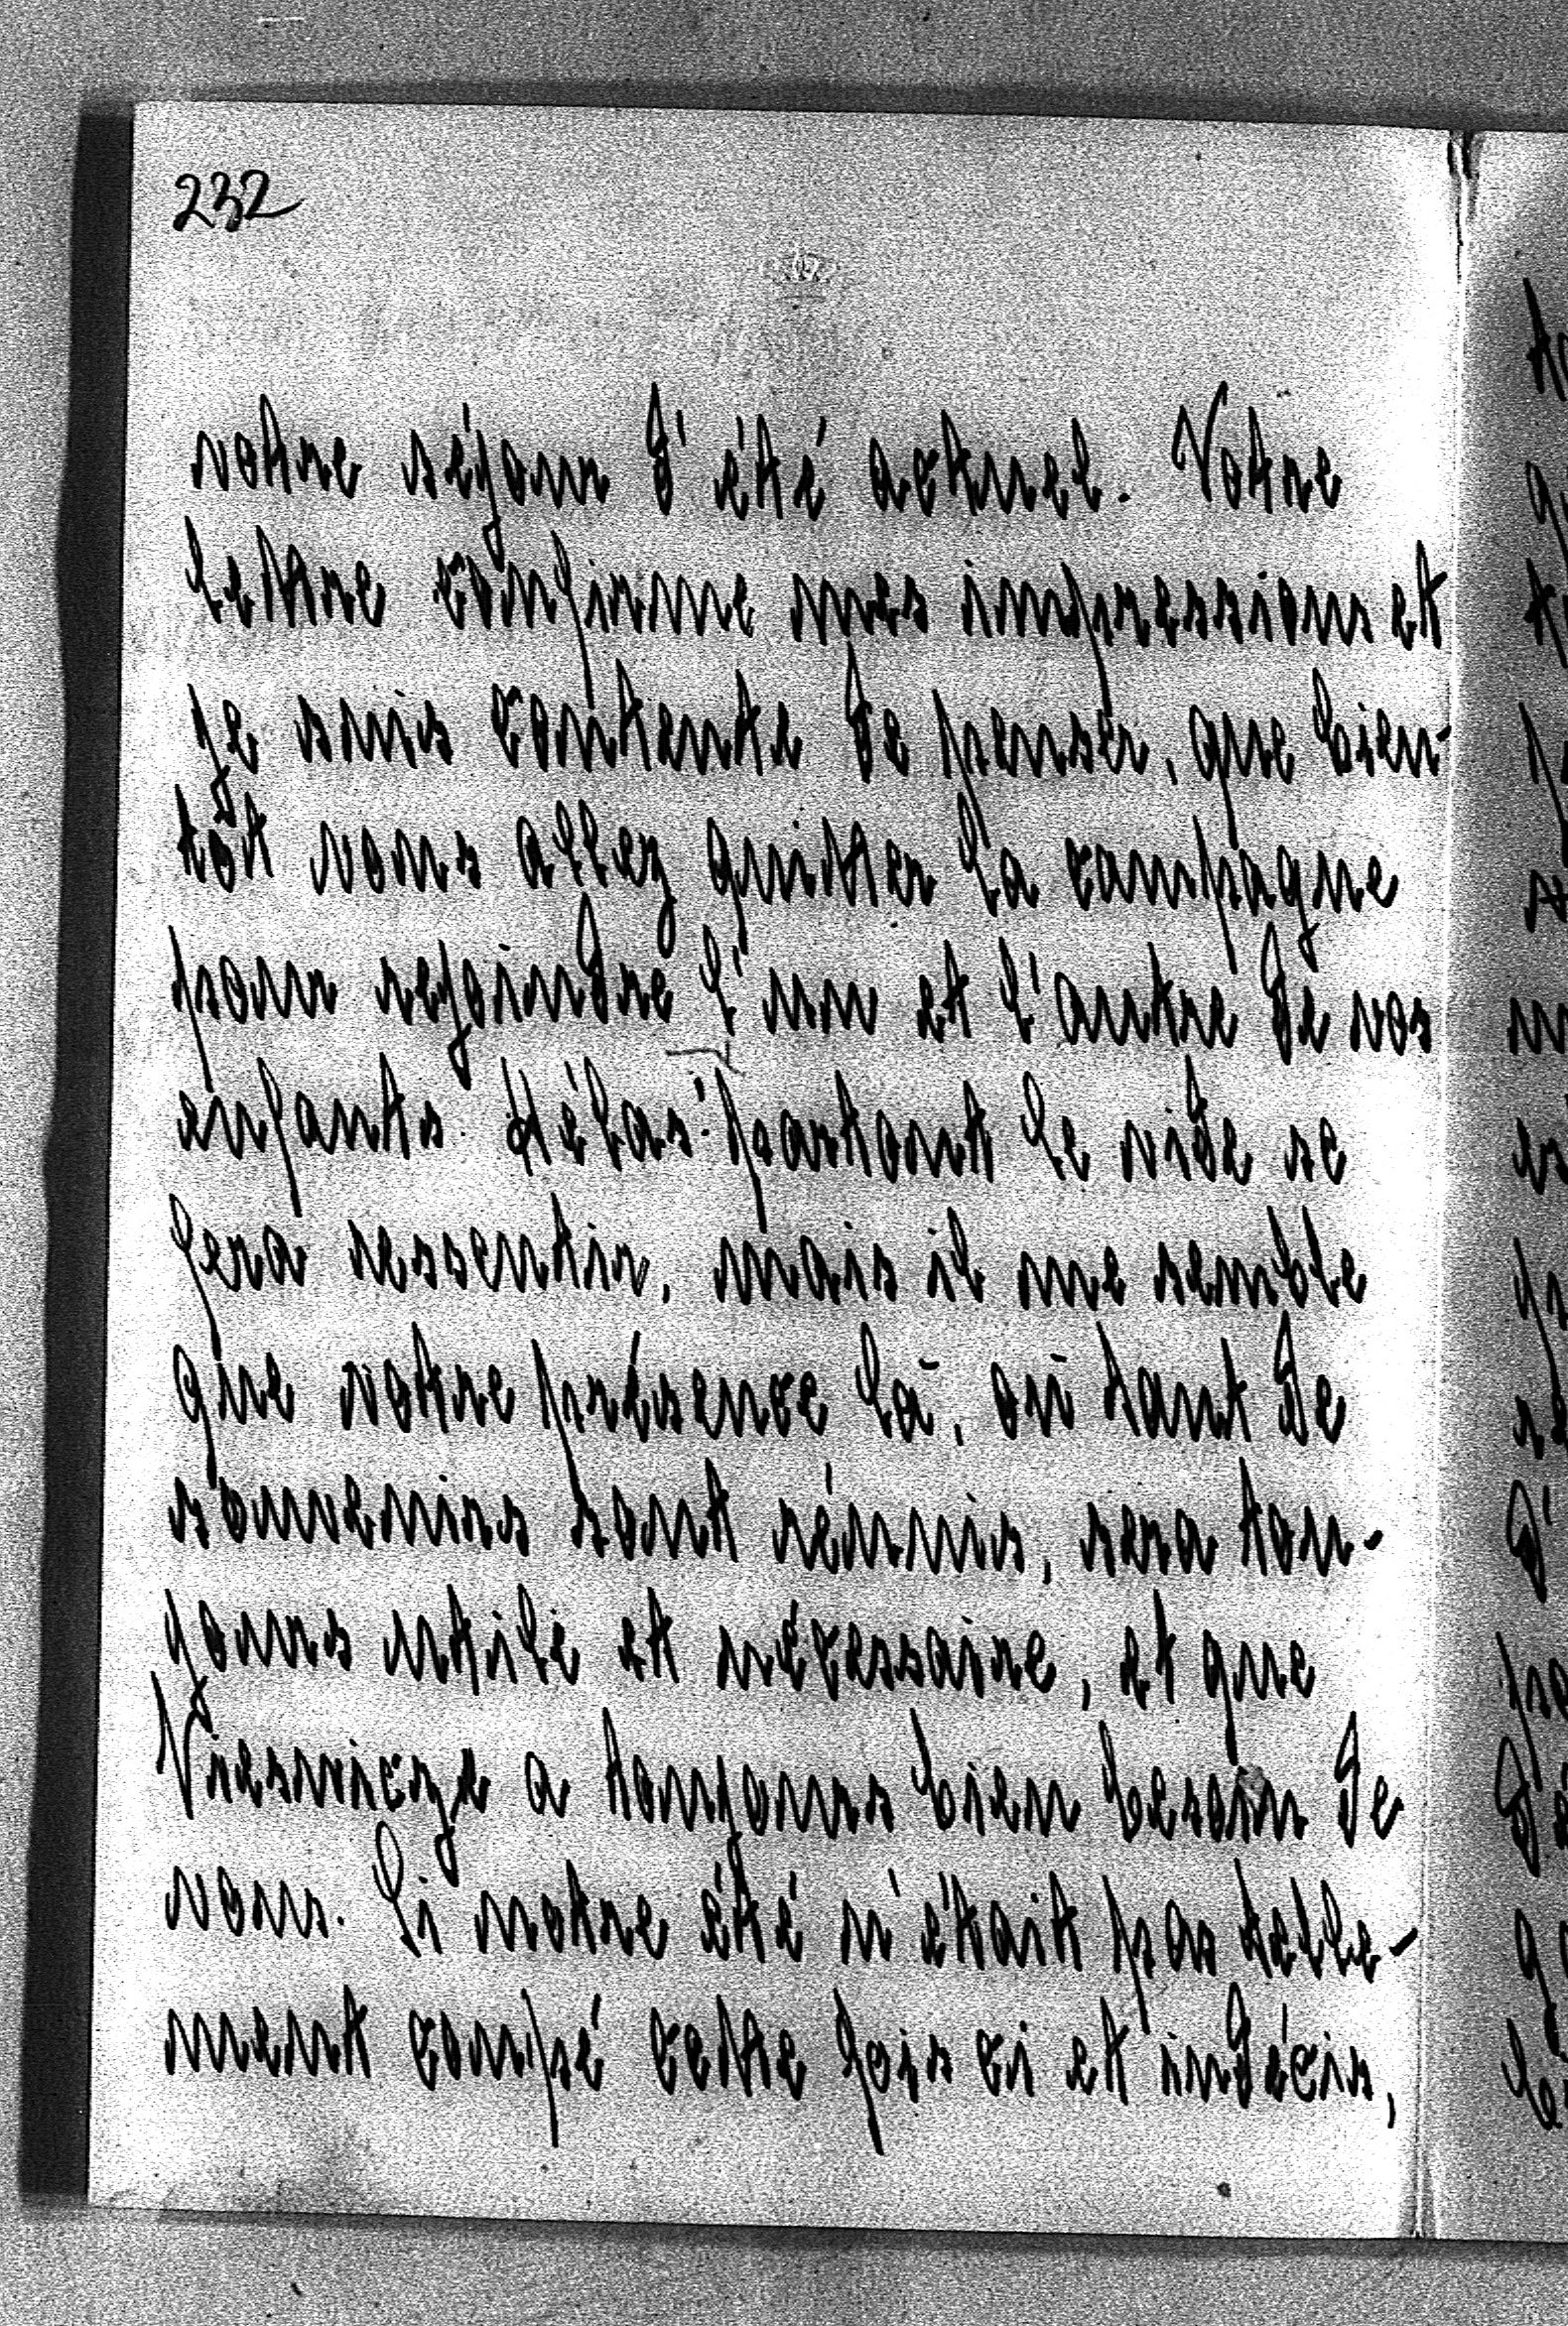 232
votre séjour d'été actuel. Votre
lettre confirme mes impressions et
je suis contente de penser, que bien-
tôt vous allez quitter la campagne
pour rejoindre l'un et l'autre de vos
enfants. Hélas! partout le vide se
fera ressentir, mais il me semble
que votre présence là, où tant de
souvenirs sont réunis, sera tou-
jours utile et nécessaire, et que
a toujours bien besoin de
vous. Si notre été n'était pas telle-
ment coupé cette fois ci et indécis,